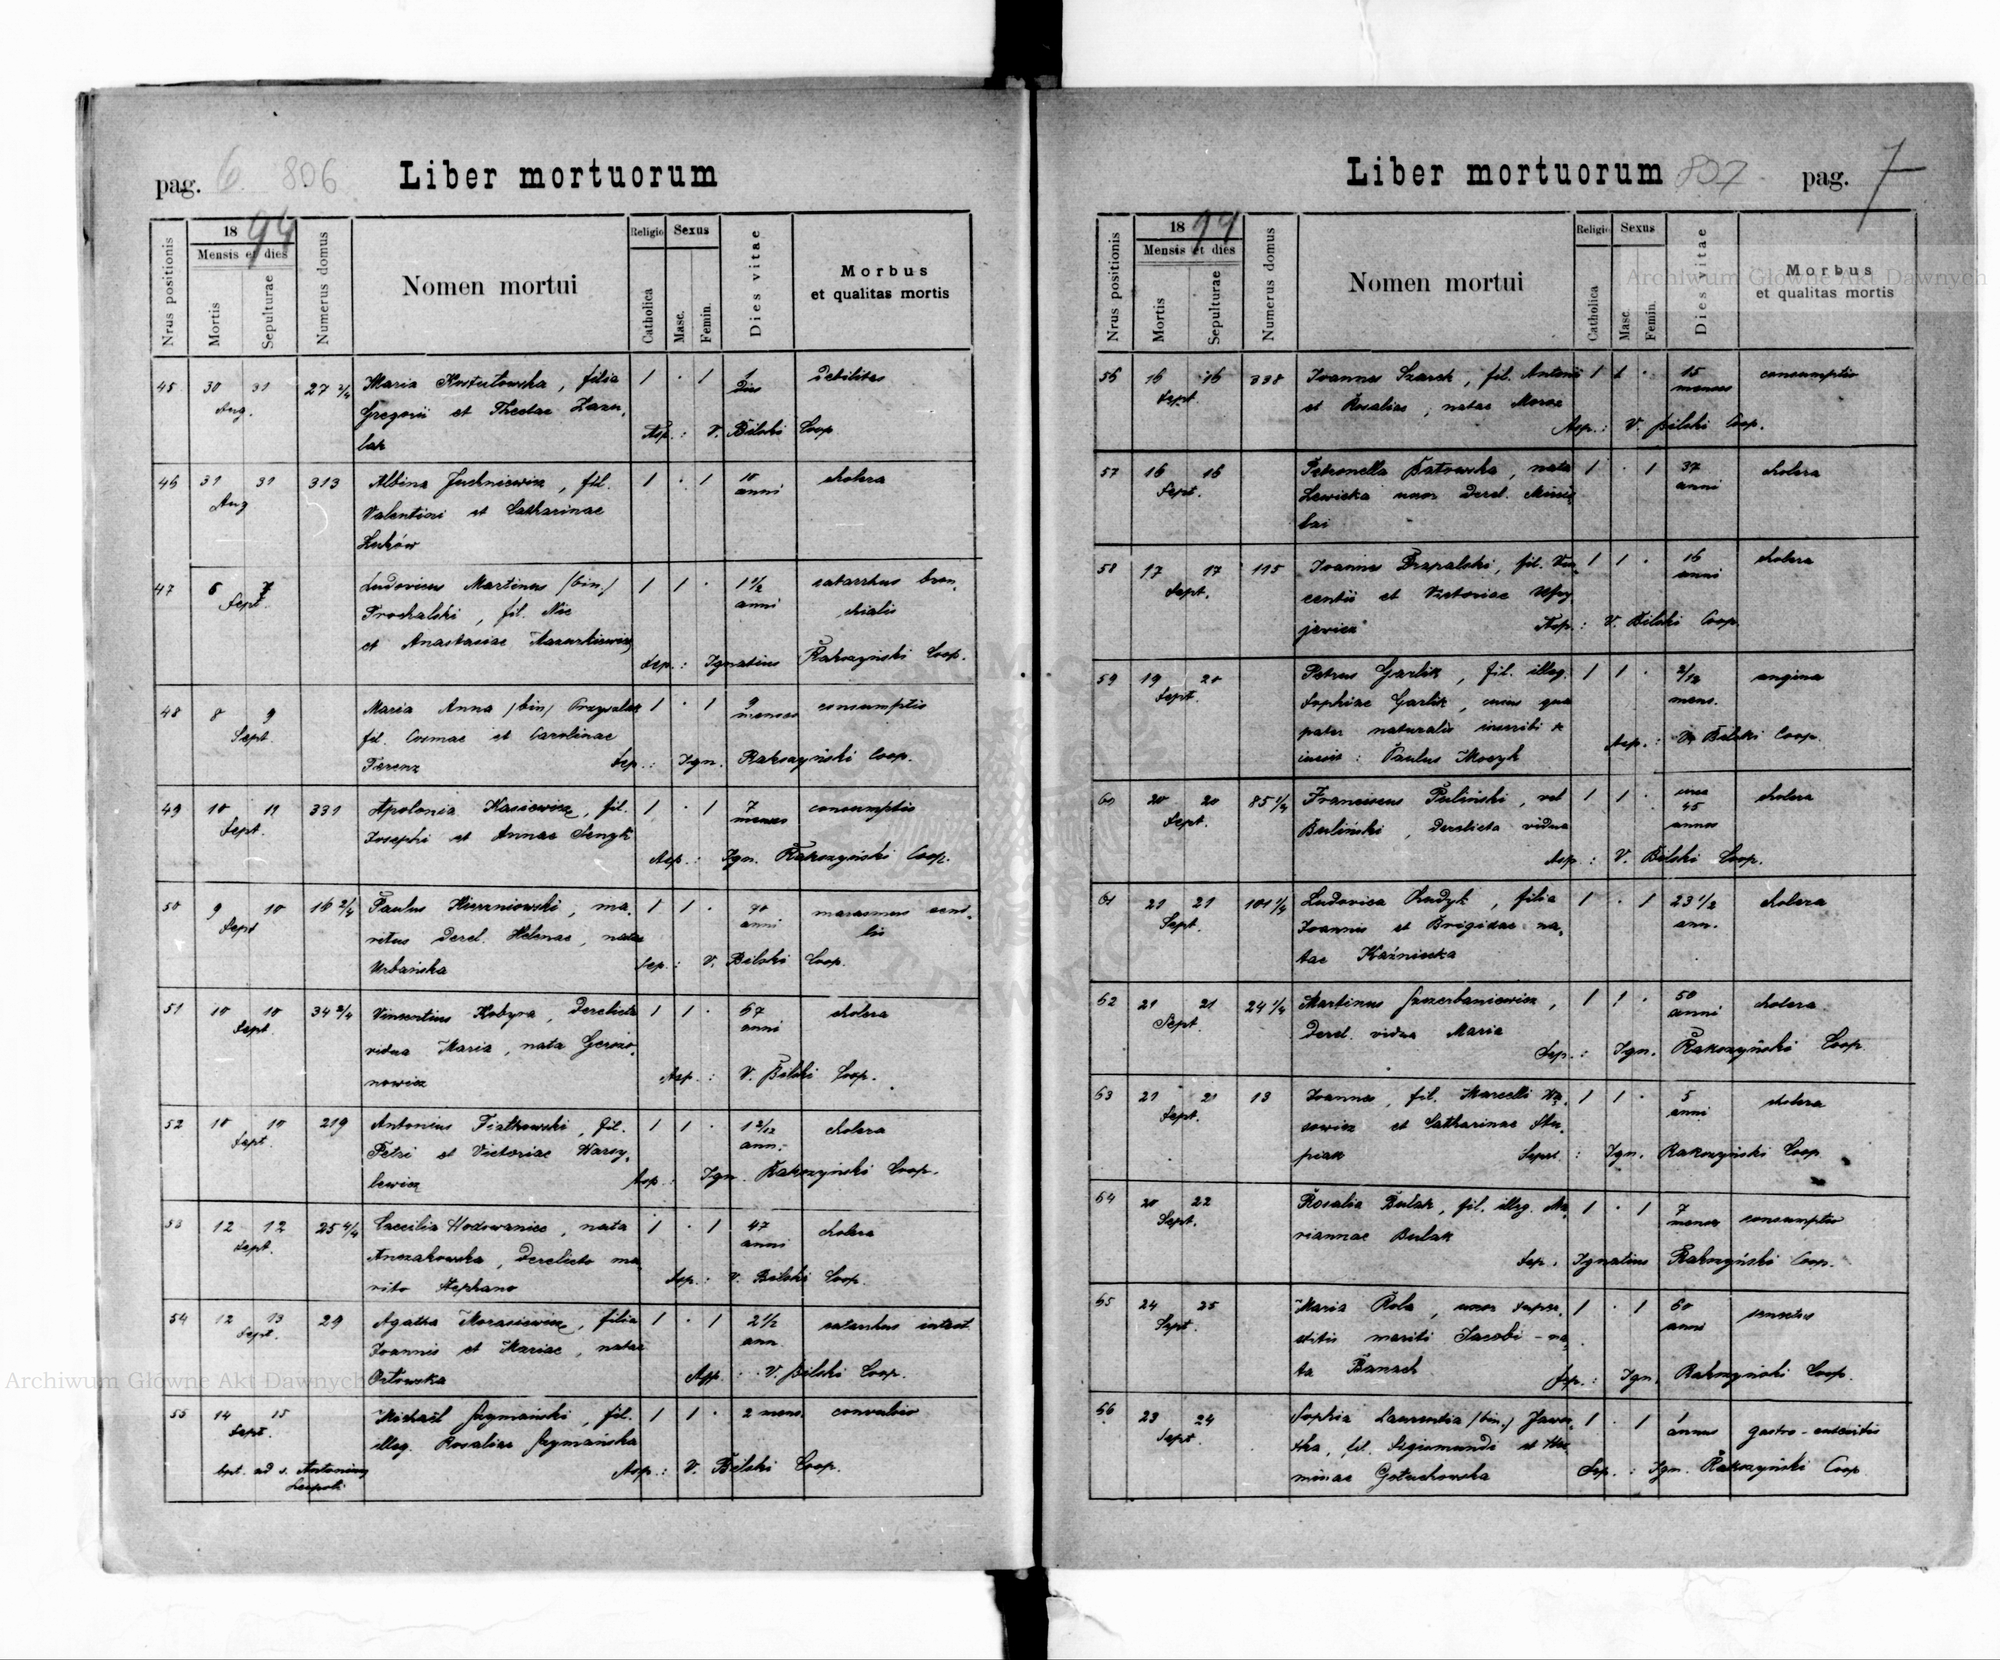 pag. 6 806 Liber mortuorum
Nrus positionis
1894
Mensis et dies
Mortis
Sepulturae
Numerus domus
Nomen mortui
Religio
Catholica
Sexus
Masc.
Femin.
Dies vitae
Morbus
et qualitas mortis
45 30 31 27 2/4 Maria filia 1 · 1 1 debilitas
Aug. Gregorii et Theclae dies
Sep.: V. Bilski Coop.
46 31 31 313 Albina Juchniewicz, fil. 1 · 1 10 cholera
Aug Valentini et Catharinae anni
Żuków
47 6 7 Ludovicus Martinus (bin.) 1 1 · 1 1/2 catarrhus bron-
Sept. Prochalski, fil. Nic anni chialis
et Anastasiae Mazurkiewicz
Sep.: Ignatius Rakoczyński Coop.
48 8 9 Maria Anna (bin) 1 · 1 9 consumptio
Sept. fil. Cosmae et Carolinae menses
Ferenz Sep.: Ign. Rakoczyński Coop.
49 10 11 331 Apolonia Kasiewicz, fil. 1 · 1 7 consumptio
Sept. Josephi et Annae Senyk menses
Sep.: Ign. Rakoczyński Coop.
50 9 10 16 2/4 Paulus ma- 1 1 · 70 marasmus seni-
Sept ritus derel. Helenae, natae anni lis
Urbańska Sep.: V. Bilski Coop.
51 10 10 34 2/4 Vincentius Kobyra, derelicta 1 1 · 67 cholera
Sept. vidua Maria, nata anni
nowicz Sep.: V. Bilski Coop.
52 10 10 219 Antonius Fiałkowski, fil. 1 1 · 1 2/12 cholera
Sept. Petri et Victoriae Warzy- ann.
lewicz Sep.: Ign. Rakoczyński Coop.
53 12 12 25 4/4 Caecilia Hodowaniec, nata 1 · 1 47 cholera
Sept. Anczakowska, derelicto ma- anni
rito Stephano Sep.: V. Bilski Coop.
54 12 13 29 Agatha Morasiewicz, filia 1 · 1 2 1/2 catarrhus intest.
Sept. Joannis et Mariae, natae ann.
Orłowska Sep.: V. Bilski Coop.
55 14 15 Michaël Szymański, fil. 1 1 · 2 mens. convulsio
Sept. illeg. Rosaliae Szymańska
bpt. ad s. Antonium Sep.: V. Bilski Coop.
Leopoli
Liber mortuorum 807 pag. 7
Nrus positionis
1894
Mensis et dies
Mortis
Sepulturae
Numerus domus
Nomen mortui
Religio
Catholica
Sexus
Masc.
Femin.
Dies vitae
Morbus
et qualitas mortis
56 16 16 338 Joannes Szarek, fil. Antonii 1 1 · 15 consumptio
Sept et Rosaliae, natae Moroz menses
Sep.: V. Bilski Coop.
57 16 16 Petronella Batowska, nata 1 · 1 37 cholera
Sept. Lewicka uxor derel. anni
58 17 17 115 Joannes fil. Vin- 1 1 · 16 cholera
Sept. centii et Victoriae anni
Sep.: V. Bilski Coop.
59 19 20 Petrus Garlik, fil. illeg. 1 1 · 2/12 angina
Sept. Sophiae Garlik, cuius qua mens.
pater naturalis inscribi se
iussit: Paulus Moczyk Sep.: V. Bilski Coop.
60 20 20 85 1/4 Franciscus Puliński, vel 1 1 · circa cholera
Sept. Buliński, derelicta vidua 45
annos
Sep.: V. Bilski Coop.
61 21 21 101 1/4 Ludovica Dudyk, filia 1 · 1 23 1/2 cholera
Sept. Joannis et Brigidae na- ann.
tae Kaźnicka
62 21 21 24 1/4 Martinus Szczerbaniewicz, 1 1 · 50 cholera
Sept. derel. vidua Maria anni
Sep.: Ign. Rakoczyński Coop.
63 21 21 13 Joannes, fil. Marcelli 1 1 · 5 cholera
Sept. et Catharinae Stu- anni
piak Sepel.: Ign. Rakoczyński Coop
64 20 22 Rosalia Bulak, fil. illeg. Ma- 1 · 1 7 consumptio
Sept. riannae Bulak menses
Sep. Ignatius Rakoczyński Coop.
65 24 25 Maria Rola, uxor super- 1 · 1 60 senectus
Sept. stitis mariti Jacobi - na- anni
ta Banach Sep.: Ign. Rakoczyński Coop.
66 23 24 Sophia Laurentia (bin.) Jawor- 1 · 1 1 gastro-enteritis
Sept. ska, fil. Sigismundi et annus
minae Gołuchowska Sep.: Ign. Rakoczyński Coop
Archiwum Główne Akt Dawnych
Archiwum Główne Akt Dawnych